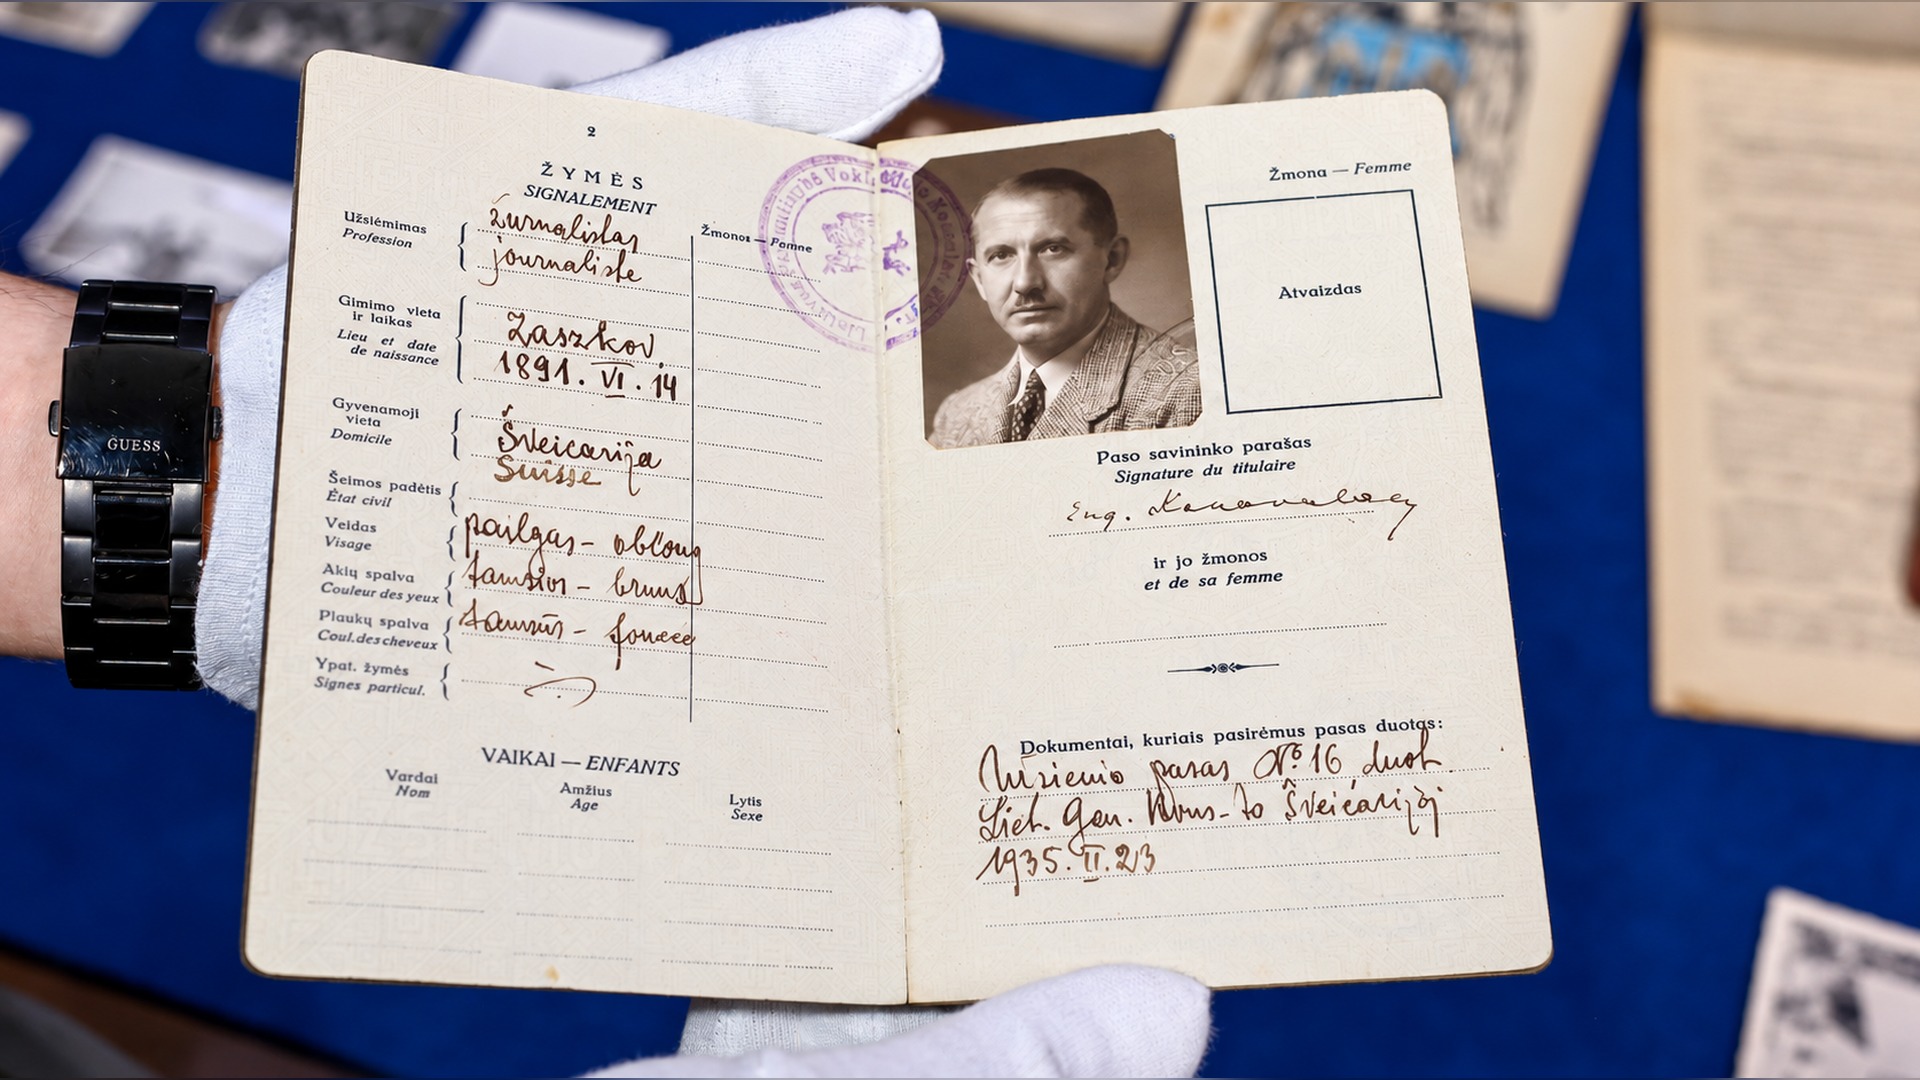 2
ŽYMĖS
SIGNALEMENT
Užsiėmimas
Profession
žurnalistas
journaliste
Žmonos — Femme
Gimimo vieta
ir laikas
Lieu et date
de naissance
Zaszkov
1891. VI. 14
Gyvenamoji
vieta
Domicile
Šveicarija
Suisse
Šeimos padėtis
État civil
Veidas
Visage
pailgas – oblong
Akių spalva
Couleur des yeux
tamsios – bruns
Plaukų spalva
Coul. des cheveux
tamsūs – foncée
Ypat. žymės
Signes particul.
VAIKAI — ENFANTS
Vardai
Nom
Amžius
Age
Lytis
Sexe
Žmona — Femme
Atvaizdas
Paso savininko parašas
Signature du titulaire
Eug. Konovalec
ir jo žmonos
et de sa femme
Dokumentai, kuriais pasirėmus pasas duotas:
Užsienio pasas No 16 duot.
Liet. Gen. Kons-to Šveicarijoj
1935. II. 23
GUESS